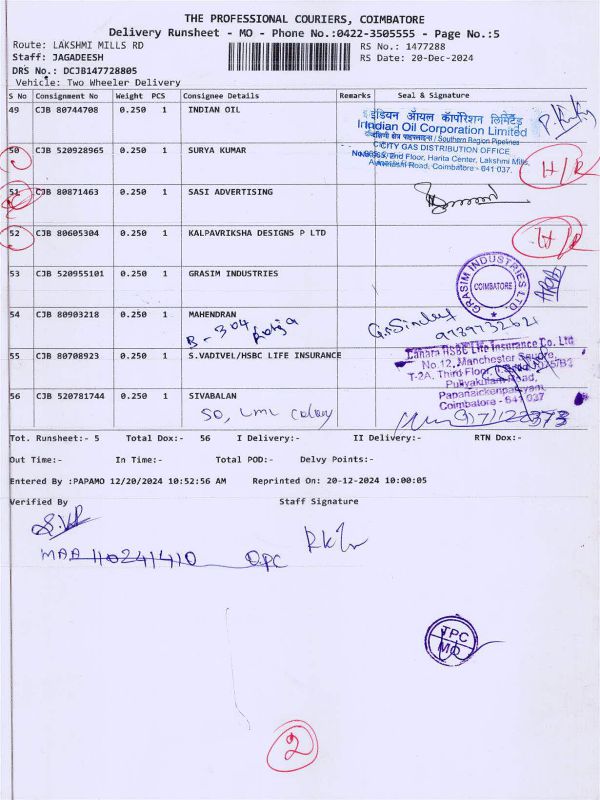 THE PROFESSIONAL COURIERS, COIMBATORE
Delivery Runsheet - MO - Phone No.:0422-3505555 - Page No.:5
Route: LAKSHMI MILLS RD RS No.: 1477288
Staff: JAGADEESH RS Date: 20-Dec-2024
DRS No.: DCJB147728805
Vehicle: Two Wheeler Delivery
S No Consignment No Weight PCS Consignee Details Remarks Seal & Signature
49 CJB 80744708 0.250 1 INDIAN OIL
इंडियन ऑयल कॉर्पोरेशन लिमिटेड
Indian Oil Corporation Limited
Southern Region Pipelines
CITY GAS DISTRIBUTION OFFICE
2nd Floor, Harita Center, Lakshmi Mills,
Road, Coimbatore - 641 037.
50 CJB 520928965 0.250 1 SURYA KUMAR
H/R
51 CJB 80871463 0.250 1 SASI ADVERTISING
52 CJB 80605304 0.250 1 KALPAVRIKSHA DESIGNS P LTD
H/R
53 CJB 520955101 0.250 1 GRASIM INDUSTRIES
GRASIM INDUSTRIES LTD.
COIMBATORE
54 CJB 80903218 0.250 1 MAHENDRAN
B-304
55 CJB 80708923 0.250 1 S.VADIVEL/HSBC LIFE INSURANCE
Canara HSBC Life Insurance Co. Ltd
No.12, Manchester Square,
T-2A, Third Floor,
Puliyakulam Road,
Coimbatore - 641 037
56 CJB 520781744 0.250 1 SIVABALAN
50, LML Colony
Tot. Runsheet:- 5 Total Dox:- 56 I Delivery:- II Delivery:- RTN Dox:-
Out Time:- In Time:- Total POD:- Delvy Points:-
Entered By :PAPAMO 12/20/2024 10:52:56 AM Reprinted On: 20-12-2024 10:00:05
Verified By Staff Signature
MAA 110241410 OPC
TPC
MO
2